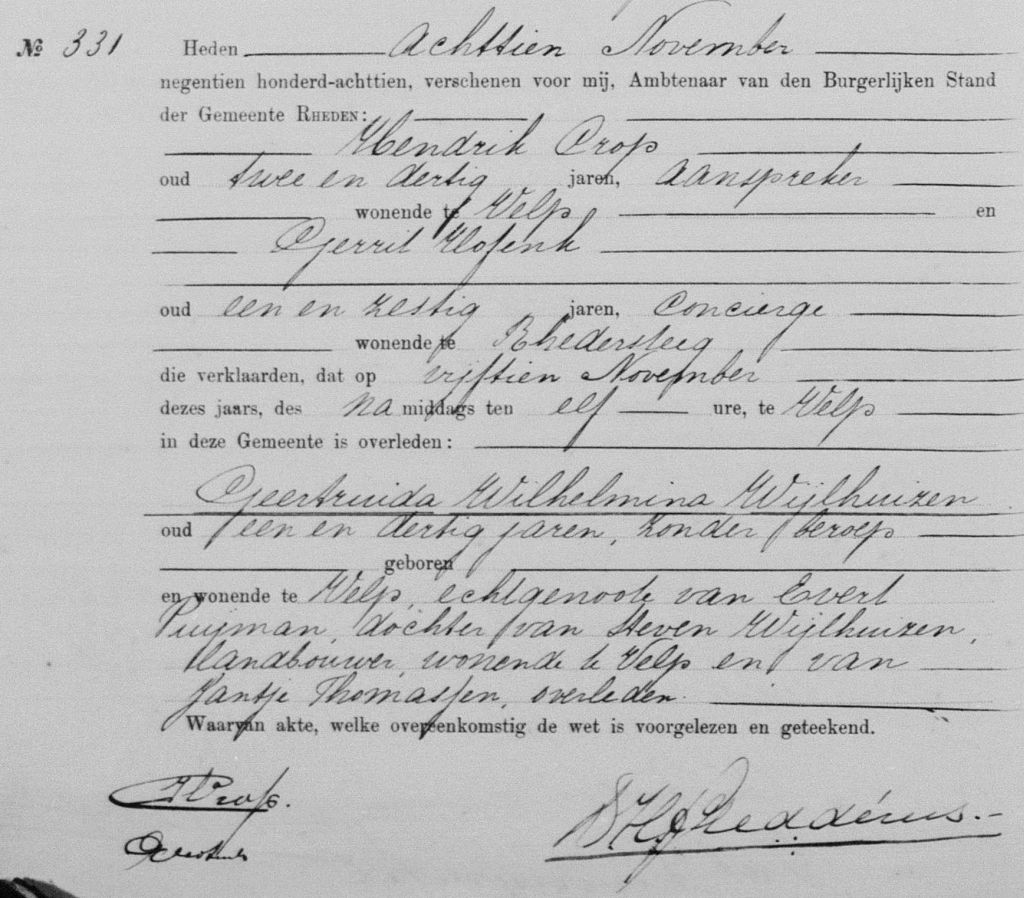 № 331 Heden achttien November
negentien honderd-achttien, verschenen voor mij, Ambtenaar van den Burgerlijken Stand
der Gemeente RHEDEN:
Hendrik Crop
oud twee en dertig jaren, aanspreker
wonende te Velp en
Gerrit
oud een en zestig jaren, concierge
wonende te Rhedersteeg
die verklaarden, dat op vijftien November
dezes jaars, des na middags ten elf ure, te Velp
in deze Gemeente is overleden:
Geertruida Wilhelmina Wijlhuizen
oud een en dertig jaren, zonder beroep
geboren
en wonende te Velp, echtgenoote van Evert
Puijman, dochter van Steven Wijlhuizen,
landbouwer, wonende te Velp en van
Jantje Thomassen, overleden.
Waarvan akte, welke overeenkomstig de wet is voorgelezen en geteekend.
HCrop.